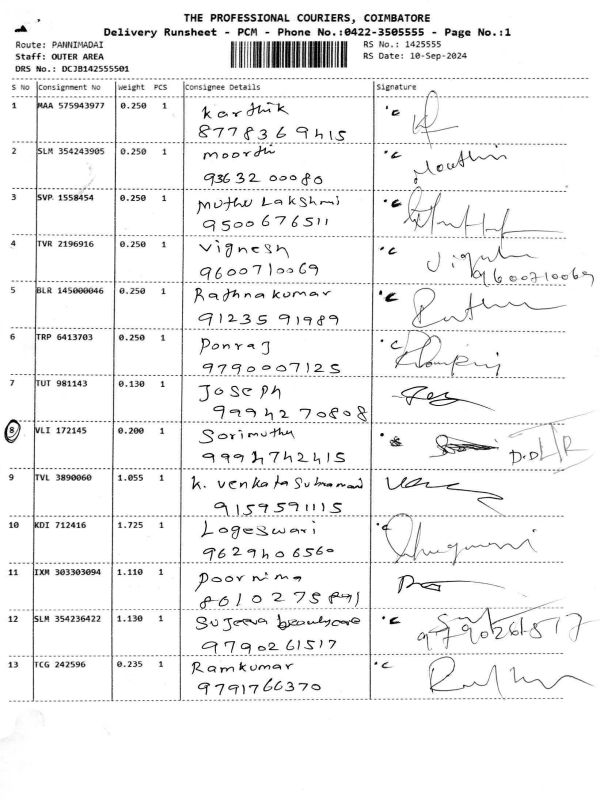 THE PROFESSIONAL COURIERS, COIMBATORE
Delivery Runsheet - PCM - Phone No.:0422-3505555 - Page No.:1
Route: PANNIMADAI
RS No.: 1425555
Staff: OUTER AREA
RS Date: 10-Sep-2024
DRS No.: DCJB142555501
S No Consignment No Weight PCS Consignee Details Signature
1 MAA 575943977 0.250 1 Karthik
8778369415
2 SLM 354243905 0.250 1 moorthi
93632 00080
3 SVP 1558454 0.250 1 Muthu Lakshmi
9500676511
4 TVR 2196916 0.250 1 Vignesh
9600710069 9600710069
5 BLR 145000046 0.250 1 Rathnakumar
91235 91989
6 TRP 6413703 0.250 1 Ponraj
9790007125
7 TUT 981143 0.130 1 Joseph
99942 70808
8 VLI 172145 0.200 1 Sorimuthu
9994742415
9 TVL 3890060 1.055 1 K. Venkatasubramani
9159591115
10 KDI 712416 1.725 1 Logeswari
9629406560
11 IXM 303303094 1.110 1 Poornima
12 SLM 354236422 1.130 1 Sujeeva
9790261517 9790261517
13 TCG 242596 0.235 1 Ramkumar
9791766370